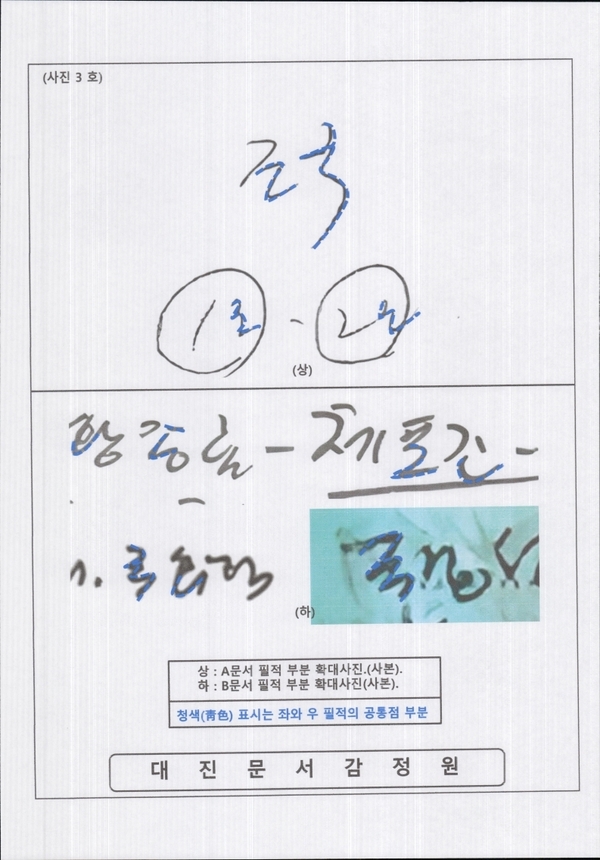 (사진 3 호)
조국
1조 - 2조
(상)
체포간 -
(하)
상 : A문서 필적 부분 확대사진.(사본).
하 : B문서 필적 부분 확대사진(사본).
청색(靑色) 표시는 좌와 우 필적의 공통점 부분
대 진 문 서 감 정 원